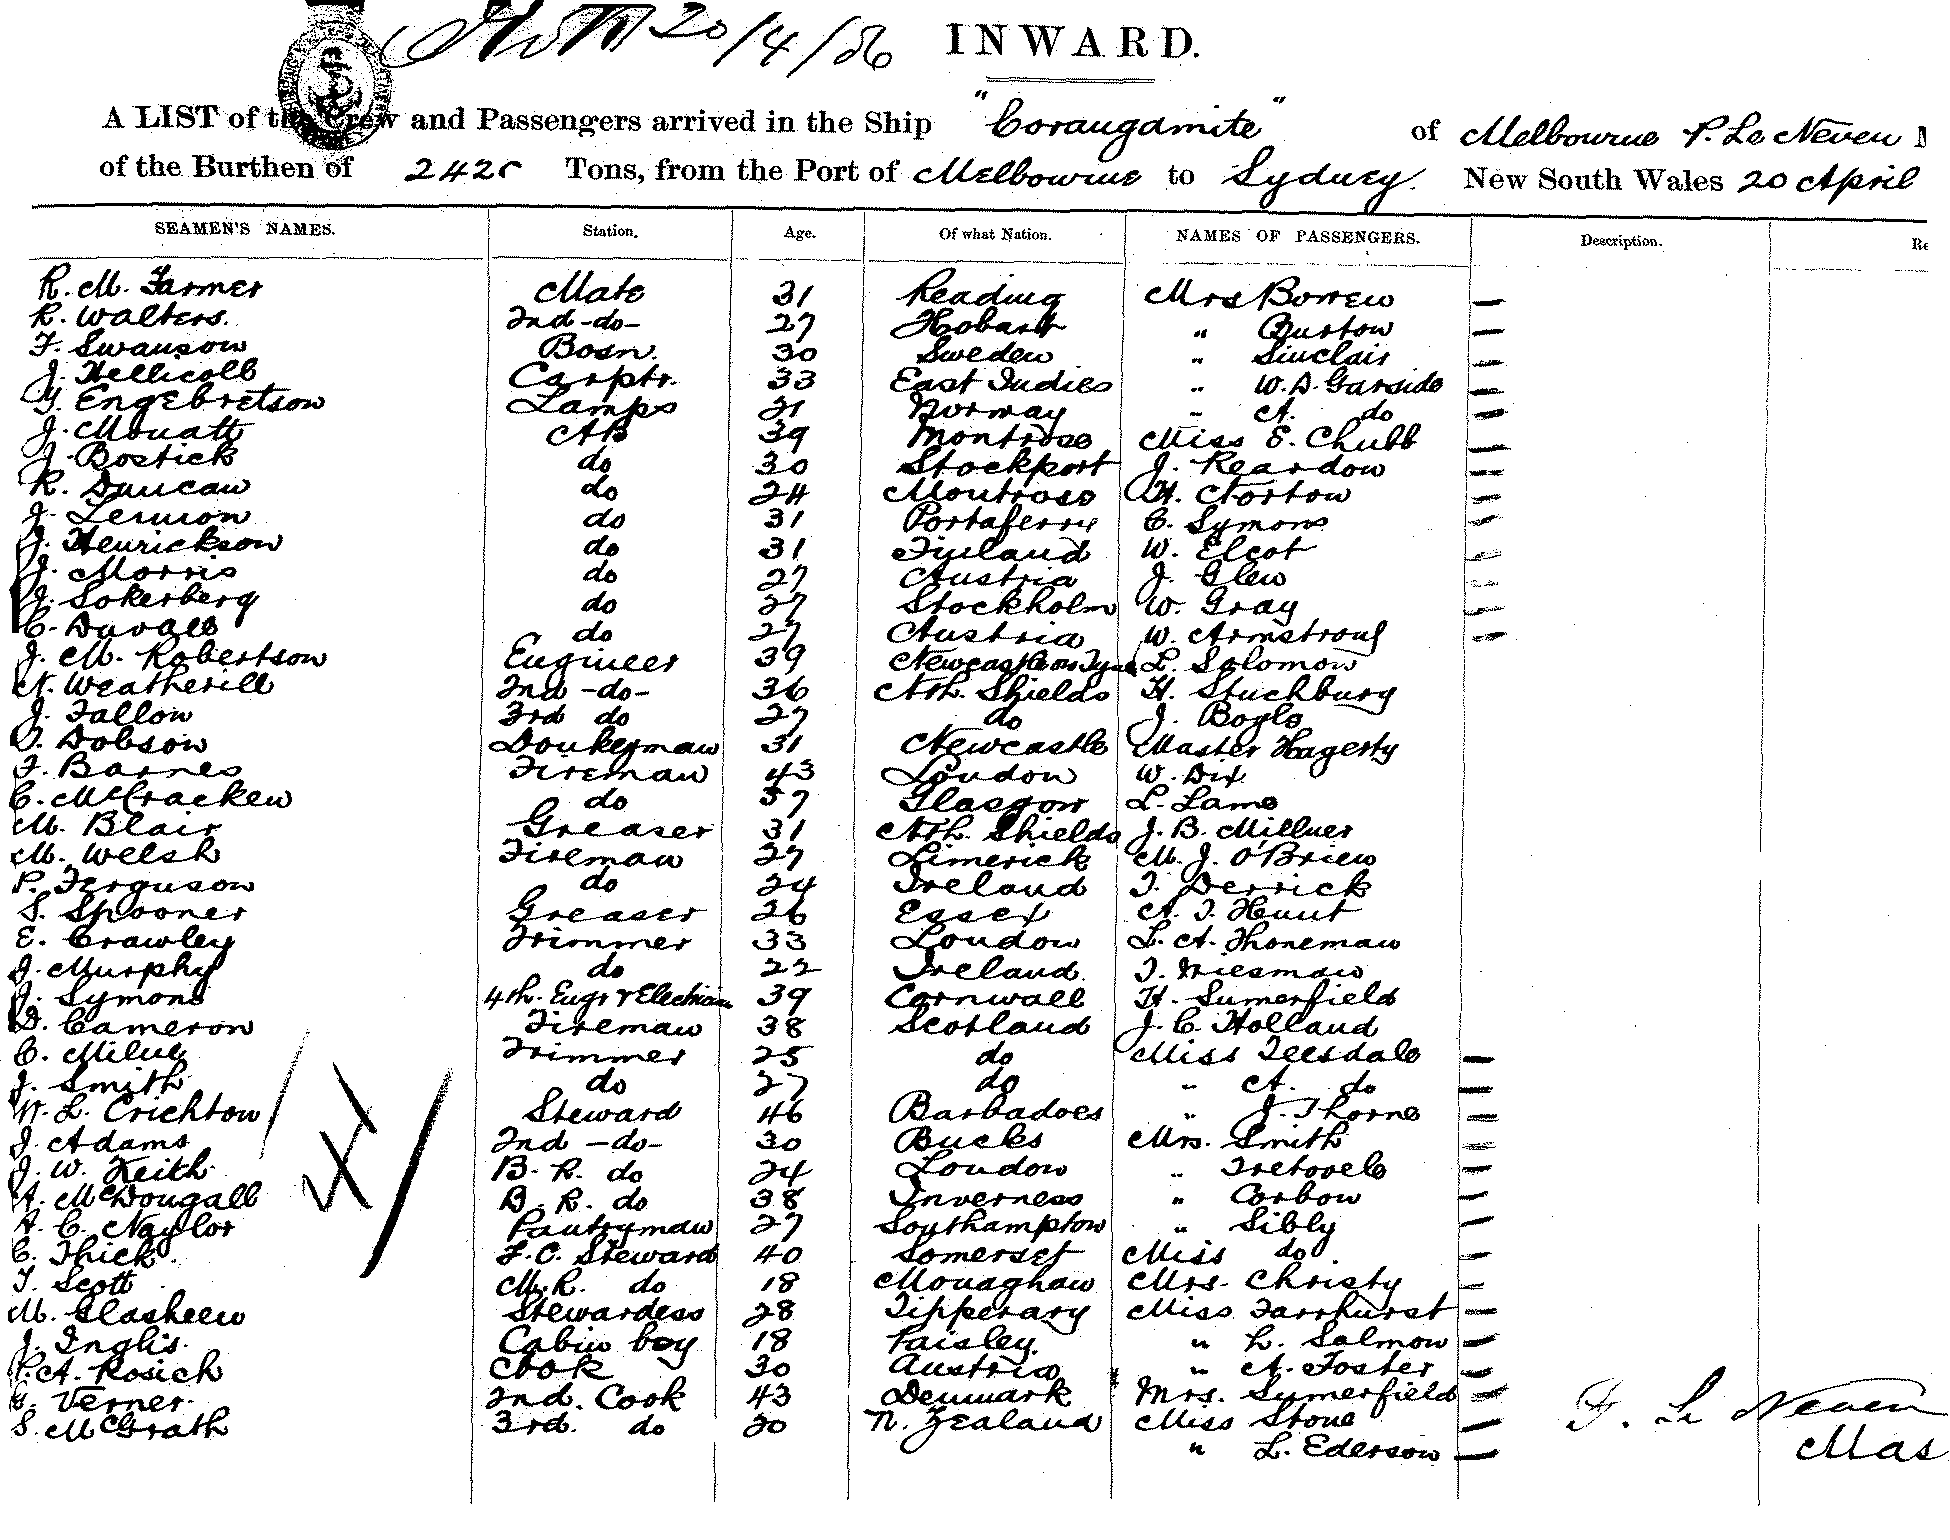 20/4/86 INWARD.
A LIST of the Crew and Passengers arrived in the Ship "Corangamite" of Melbourne P. Le Neven
of the Burthen of 2425 Tons, from the Port of Melbourne to Sydney. New South Wales 20 April
SEAMEN'S NAMES. Station. Age. Of what Nation. NAMES OF PASSENGERS. Description.
R. M. Farmer Mate 31 Reading Mrs Borrew
R. Walters. 2nd -do- 27 Hobart " Burton
F. Swanson Bosn. 30 Sweden " Sinclair
J. Hellicolb Carptr. 33 East Indies " W. D. Garside
G. Engebretson Lamps 21 Norway " A. do
J. Mouatt AB 39 Montrose Miss E. Chubb
J. Bostick do 30 Stockport J. Reardon
R. Duncan do 24 Montrose H. Norton
J. Lennon do 31 Portaferry C. Symons
J. Henrickson do 31 Finland W. Elcot
J. Morris do 27 Austria J. Glew
J. Sokerberg do 27 Stockholm W. Gray
C. Duvall do 27 Austria W. Armstrong
J. M. Robertson Engineer 39 Newcastle on Tyne L. Solomon
N. Weatherill 2nd -do- 36 Nth. Shields H. Stuchbury
J. Fallon 3rd do 27 do J. Bogle
Dobson Donkeyman 31 Newcastle Master Hagerty
F. Barnes Fireman 43 London W. Dix
C. McCracken do 37 Glasgow L. Lamo
M. Blair Greaser 31 Nth. Shields J. B. Millner
M. Welsh Fireman 27 Limerick M. J. O'Brien
P. Ferguson do 24 Ireland T. Derrick
S. Spooner Greaser 26 Essex A. T. Hunt
E. Crawley Trimmer 33 London L. A. Thoneman
J. Murphy do 22 Ireland. T. Niesman
J. Symons 4th. Engr & Electrician 39 Cornwall H. Sumerfield
D. Cameron Fireman 38 Scotland J. C. Holland
C. Milne Trimmer 25 do Miss Teesdale
J. Smith do 27 do " A. do
W. L. Crichton Steward 46 Barbadoes " J. Thorne
J. Adams 2nd -do- 30 Bucks Mrs. Smith
J. W. Keith B. R. do 24 London " Tretovelo
A. McDougall B. R. do 38 Inverness " Corbow
A. C. Naylor Pantryman 27 Southampton " Sibly
C. Thick. F. C. Steward 40 Somerset Miss do.
T. Scott M. R. do 18 Monaghan Mrs. Christy
M. Glasheen Stewardess 28 Tipperary Miss Farrhurst
J. Inglis. Cabin boy 18 Paisley. " L. Salmon
P. A. Rosich Cook 30 Austria " A. Foster
C. Verner. 2nd. Cook 43 Denmark Mrs. Sumerfield
S. McGrath 3rd. do 20 N. Zealand Miss Stone
" L. Ederson
F. Le Neven
Mas